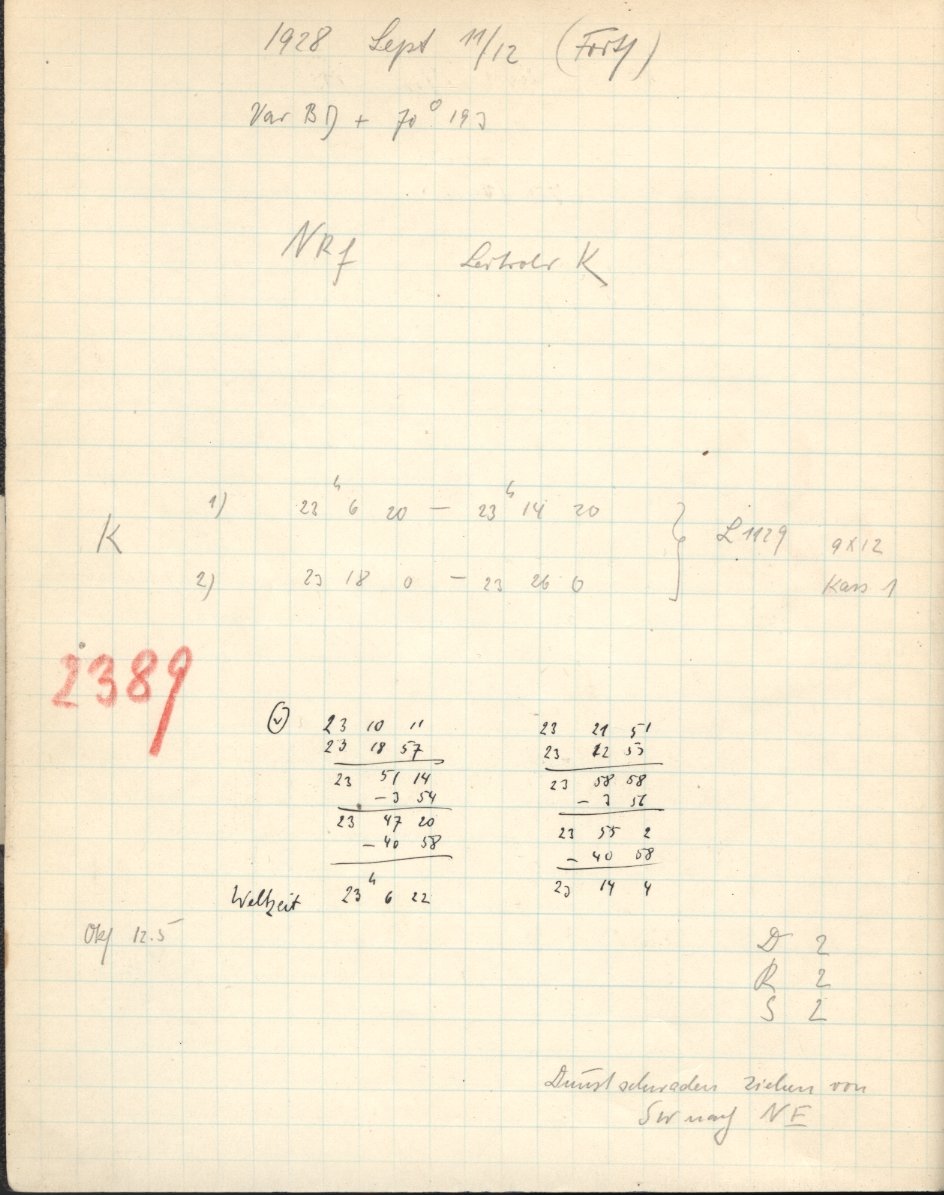 1928 Sept 11/12 (Forts)
Var BD + 70° 193
NRf Leitrohr K
1) 23h 6 20 — 23h 14 20
K } L 1129 9X12
2) 23 18 0 — 23 26 0 Kass 1
2389
23 10 11 23 21 51
23 18 57 23 22 53
23 51 14 23 58 58
– 3 54 – 3 56
23 47 20 23 55 2
– 40 58 – 40 58
Weltzeit 23h 6 22 23 14 4
Okf 12.5
D 2
R 2
S 2
Dunstschwaden ziehen von
SW nach NE